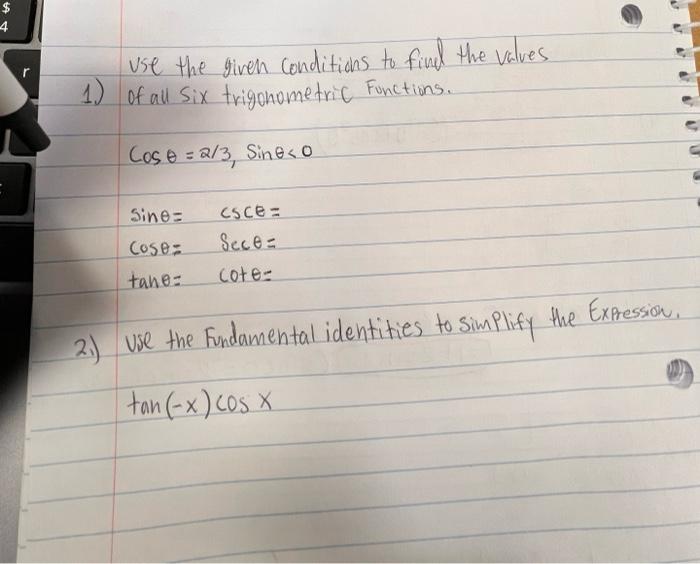 $
4
r
Use the given conditions to find the values
1.) of all six trigonometric Functions.
Cosθ = 2/3, Sinθ<0
Sinθ= cscθ=
Cosθ= Secθ=
tanθ= Cotθ=
2.) Use the Fundamental identities to simplify the Expression.
tan(-x) cos x